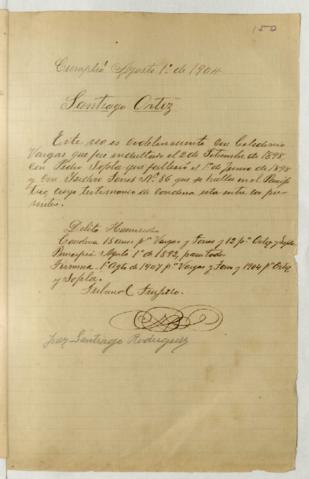 150
Cumplió Agosto 1º de 1904
Santiago Ortiz
Este reo es codelincuente con Celedonio
Vargas que fue indultado el 2 de Setiembre de 1898
con Pedro Sopla que falleció el 1º de Junio de 1898
y con Isidro Tones Nº 86 que se halla en el Panóp
tico cuyo testimonio de condena esta entre los pre
sentes.
Delito Homicidio
Condena 15 años pª Vargas y Tones y 12 pª Ortiz y Sopla.
Principió Agosto 1º de 1892, para todos
Termina 1º Agto de 1907 pª Vargas y Tones y 1904 pª Ortiz
y Sopla.
Tribunal Trujillo.
Juez Santiago Rodriguez